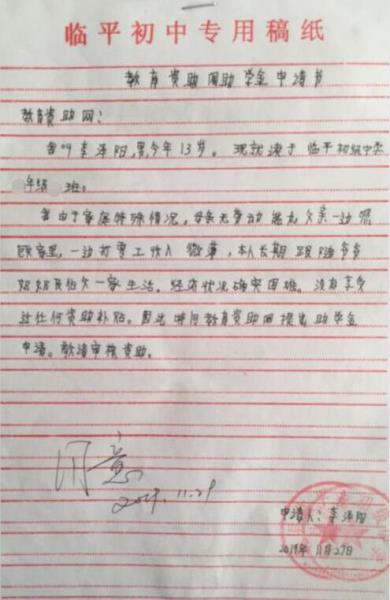 临平初中专用稿纸
教育资助网助学金申请书
教育资助网：
我叫李泽阳，男，今年13岁。现就读于临平初级中学
年级 班。
由于家庭特殊情况，母亲无劳动能力父亲一边照
顾家里，一边打零工收入微薄，本人长期跟随爷爷
奶奶和伯父一家生活。经济状况确实困难。没有享受
过任何资助补贴。因此特向教育资助网提出助学金
申请。敬请审核资助。
同意
2019.11.29
申请人：李泽阳
2019年11月27日